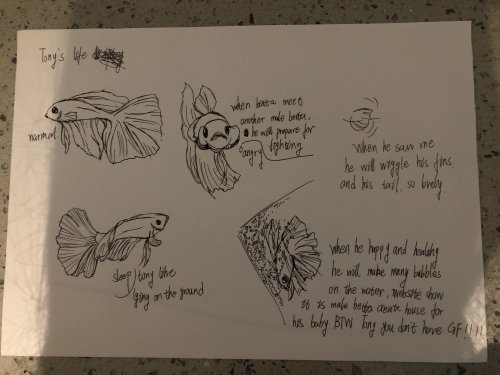 Tony's life
normal
when betta meet
another male betta,
he will prepare for
fighting
angry
when he saw me
he will wiggle his fins
and his tail. so lively
sleep) tony like
lying on the ground
when he happy and healthy
he will make many bubbles
on the water, website show
it is male betta create house for
his baby BTW Tony you don't have GF!!!!